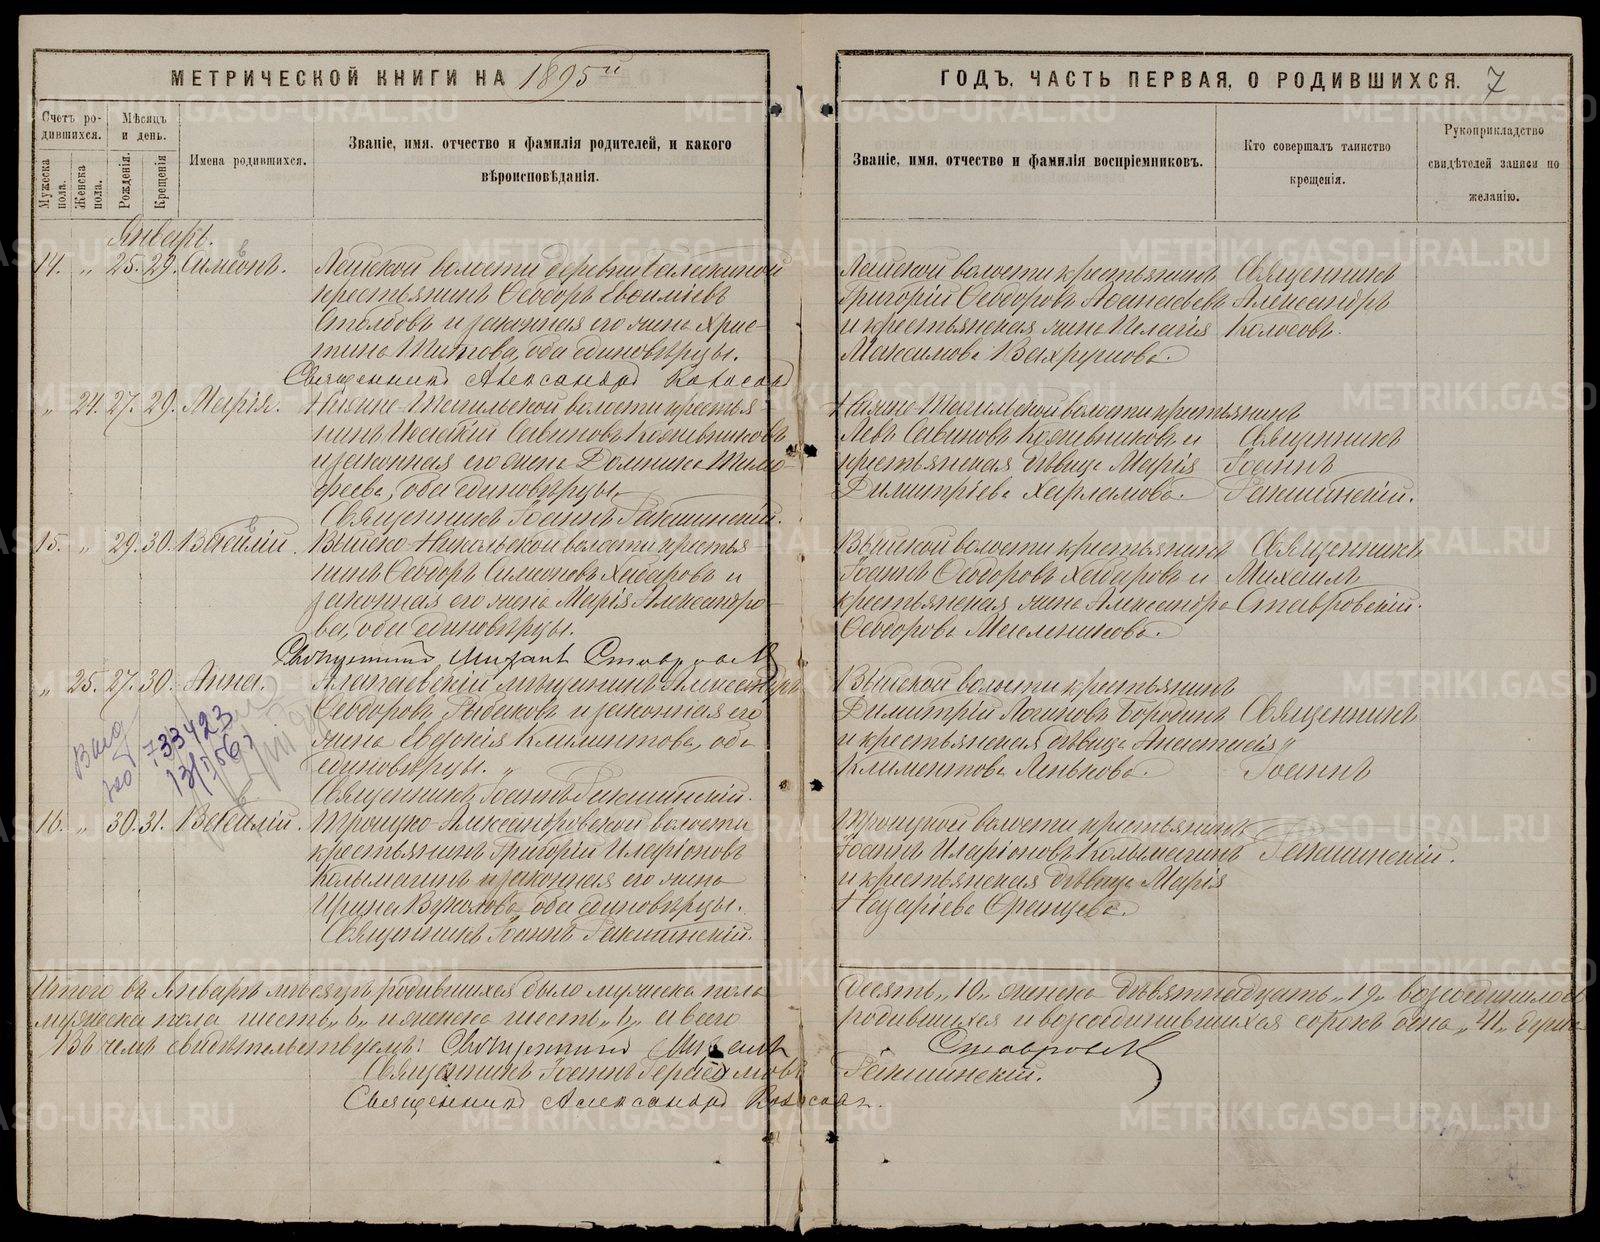 МЕТРИЧЕСКОЙ КНИГИ НА 1895й
ГОДЪ, ЧАСТЬ ПЕРВАЯ, О РОДИВШИХСЯ. 7
Счетъ ро-
дившихся.
Мужеска пола.
Женска пола.
Мѣсяцъ и день.
Рожденія.
Крещенія
Имена родившихся.
Званіе, имя, отчество и фамилія родителей, и какого
вѣроисповѣданія.
Званіе, имя, отчество и фамилія воспріемниковъ.
Кто совершалъ таинство
крещенія.
Рукоприкладство
свидѣтелей записи по
желанію.
Январь.
14. „ 25. 29. Симеонъ.
Лайской волости деревни
крестьянинъ Ѳеодоръ Евѳиміевъ
Столбовъ и законная его жена Хрис-
тина Титова, оба единовѣрцы.
Священникъ Александръ Колосовъ
Лайской волости крестьянинъ
Григорій Ѳеодоровъ
и крестьянская жена Пелагія
Максимова Вахрушова.
Священникъ
Александръ
Колосовъ.
„ 24. 27. 29. Марія.
Нижне-Тагильской волости крестья-
нинъ Савиновъ Кожевниковъ
и законная его жена Домника Тимо-
феева, оба единовѣрцы.
Священникъ Іоаннъ Гакшинскій.
Нижне-Тагильской волости крестьянинъ
Левъ Савиновъ Кожевниковъ и
крестьянская дѣвица Марія
Димитріева Харламова.
Священникъ
Іоаннъ
Гакшинскій.
15. „ 29. 30. Василій.
Выйско-Никольской волости крестья-
нинъ Ѳеодоръ Симеоновъ Хабаровъ и
законная его жена Марія Александро-
ва, оба единовѣрцы.
Священникъ Михаилъ Ставровскій
Выйской волости крестьянинъ
Іоаннъ Ѳеодоровъ Хабаровъ и
крестьянская жена Александра
Ѳеодорова Масленикова.
Священникъ
Михаилъ
Ставровскій.
„ 25. 27. 30. Анна.
Алапаевскій мѣщанинъ Александръ
Ѳеодоровъ Рыбаковъ и законная его
жена Евдокія Климентова, оба
единовѣрцы. „
Священникъ Іоаннъ Гакшинскій.
Выйской волости крестьянинъ
Димитрій Логиновъ Бородинъ
и крестьянская дѣвица Анастасія
Климентова Панькова.
Священникъ
„
Іоаннъ
733423
16. „ 30. 31. Василій.
Троицко-Александровской волости
крестьянинъ Григорій Иларіоновъ
Калымагинъ и законная его жена
Ирина Вуколова, оба единовѣрцы.
Священникъ Іоаннъ Гакшинскій.
Троицкой волости крестьянинъ
Іоаннъ Иларіоновъ Калымагинъ
и крестьянская дѣвица Марія
Назаріева
Гакшинскій.
Итого въ Январѣ мѣсяцѣ родившихся было мужеска пола
десять „10„ женска девятнадцать „19„ возсоединилось
мужеска пола шесть „6„ и женска шесть „6„ а всего
родившихся и возсоединившихся сорокъ одна „41„ душа.
Въ чемъ свидѣтельствуемъ: Священникъ Михаилъ Ставровскій
Священникъ Іоаннъ Герасимовъ Гакшинскій.
Священникъ Александръ Колосовъ.
METRIKI.GASO-URAL.RU